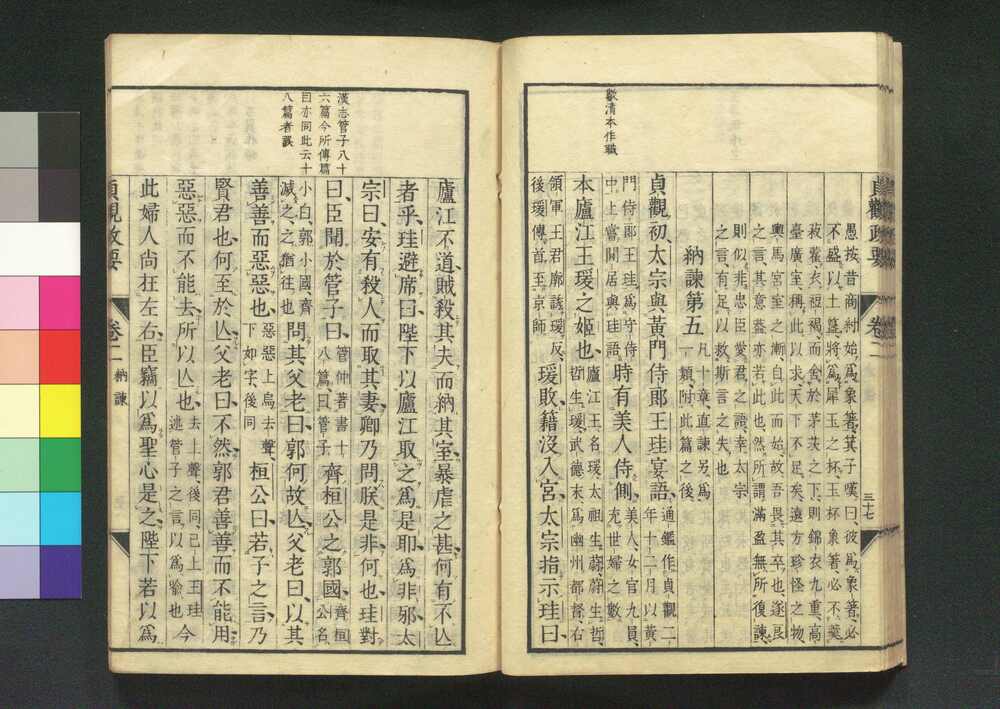 歟清本作職
貞觀政要 卷二 三十七
愚按昔商紂始爲象箸箕子嘆曰彼爲象箸必
不盛以土簋將爲犀玉之杯玉杯象箸必不羹
菽藿衣裋褐而舍於茅茨之下則錦衣九重高
臺廣室稱此以求天下不足矣遠方珍怪之物
輿馬宮室之漸自此而始故吾畏其卒也遂良
之言其意蓋亦若此也然所謂滿盈無所復諫
則似非忠臣愛君之語幸太宗
之言有足以救斯言之失也
納諫第五 凡十章直諫另爲一類附此篇之後
貞觀初太宗與黃門侍郎王珪宴語 通鑑作貞觀二年十二月以黃
門侍郎王珪爲守侍中上嘗閒居與珪語 時有美人侍側 美人女官九員充世婦之數
本廬江王瑗之姬也 廬江王名瑗太祖生蔚蔚生哲哲生瑗武德末爲幽州都督右
領軍王君廓誘瑗反後瑗傳首至京師 瑗敗籍沒入宮太宗指示珪曰
漢志管子八十
六篇今所傳篇
曰亦同此云十
八篇者誤
廬江不道賊殺其夫而納其室暴虐之甚何有不亾
者乎珪避席曰陛下以廬江取之爲是耶爲非邪太
宗曰安有殺人而取其妻卿乃問朕是非何也珪對
曰臣聞於管子曰 管仲著書十八篇曰管子 齊桓公之郭國 齊桓公名
小白郭小國齊滅之之猶往也 問其父老曰郭何故亾父老曰以其
善善而惡惡也 惡惡上烏去聲下如字後同 桓公曰若子之言乃
賢君也何至於亾父老曰不然郭君善善而不能用
惡惡而不能去所以亾也 去上聲後同已上王珪述管子之言以爲喩也 今
此婦人尙在左右臣竊以爲聖心是之陛下若以爲
貞觀政要 卷二 納諫